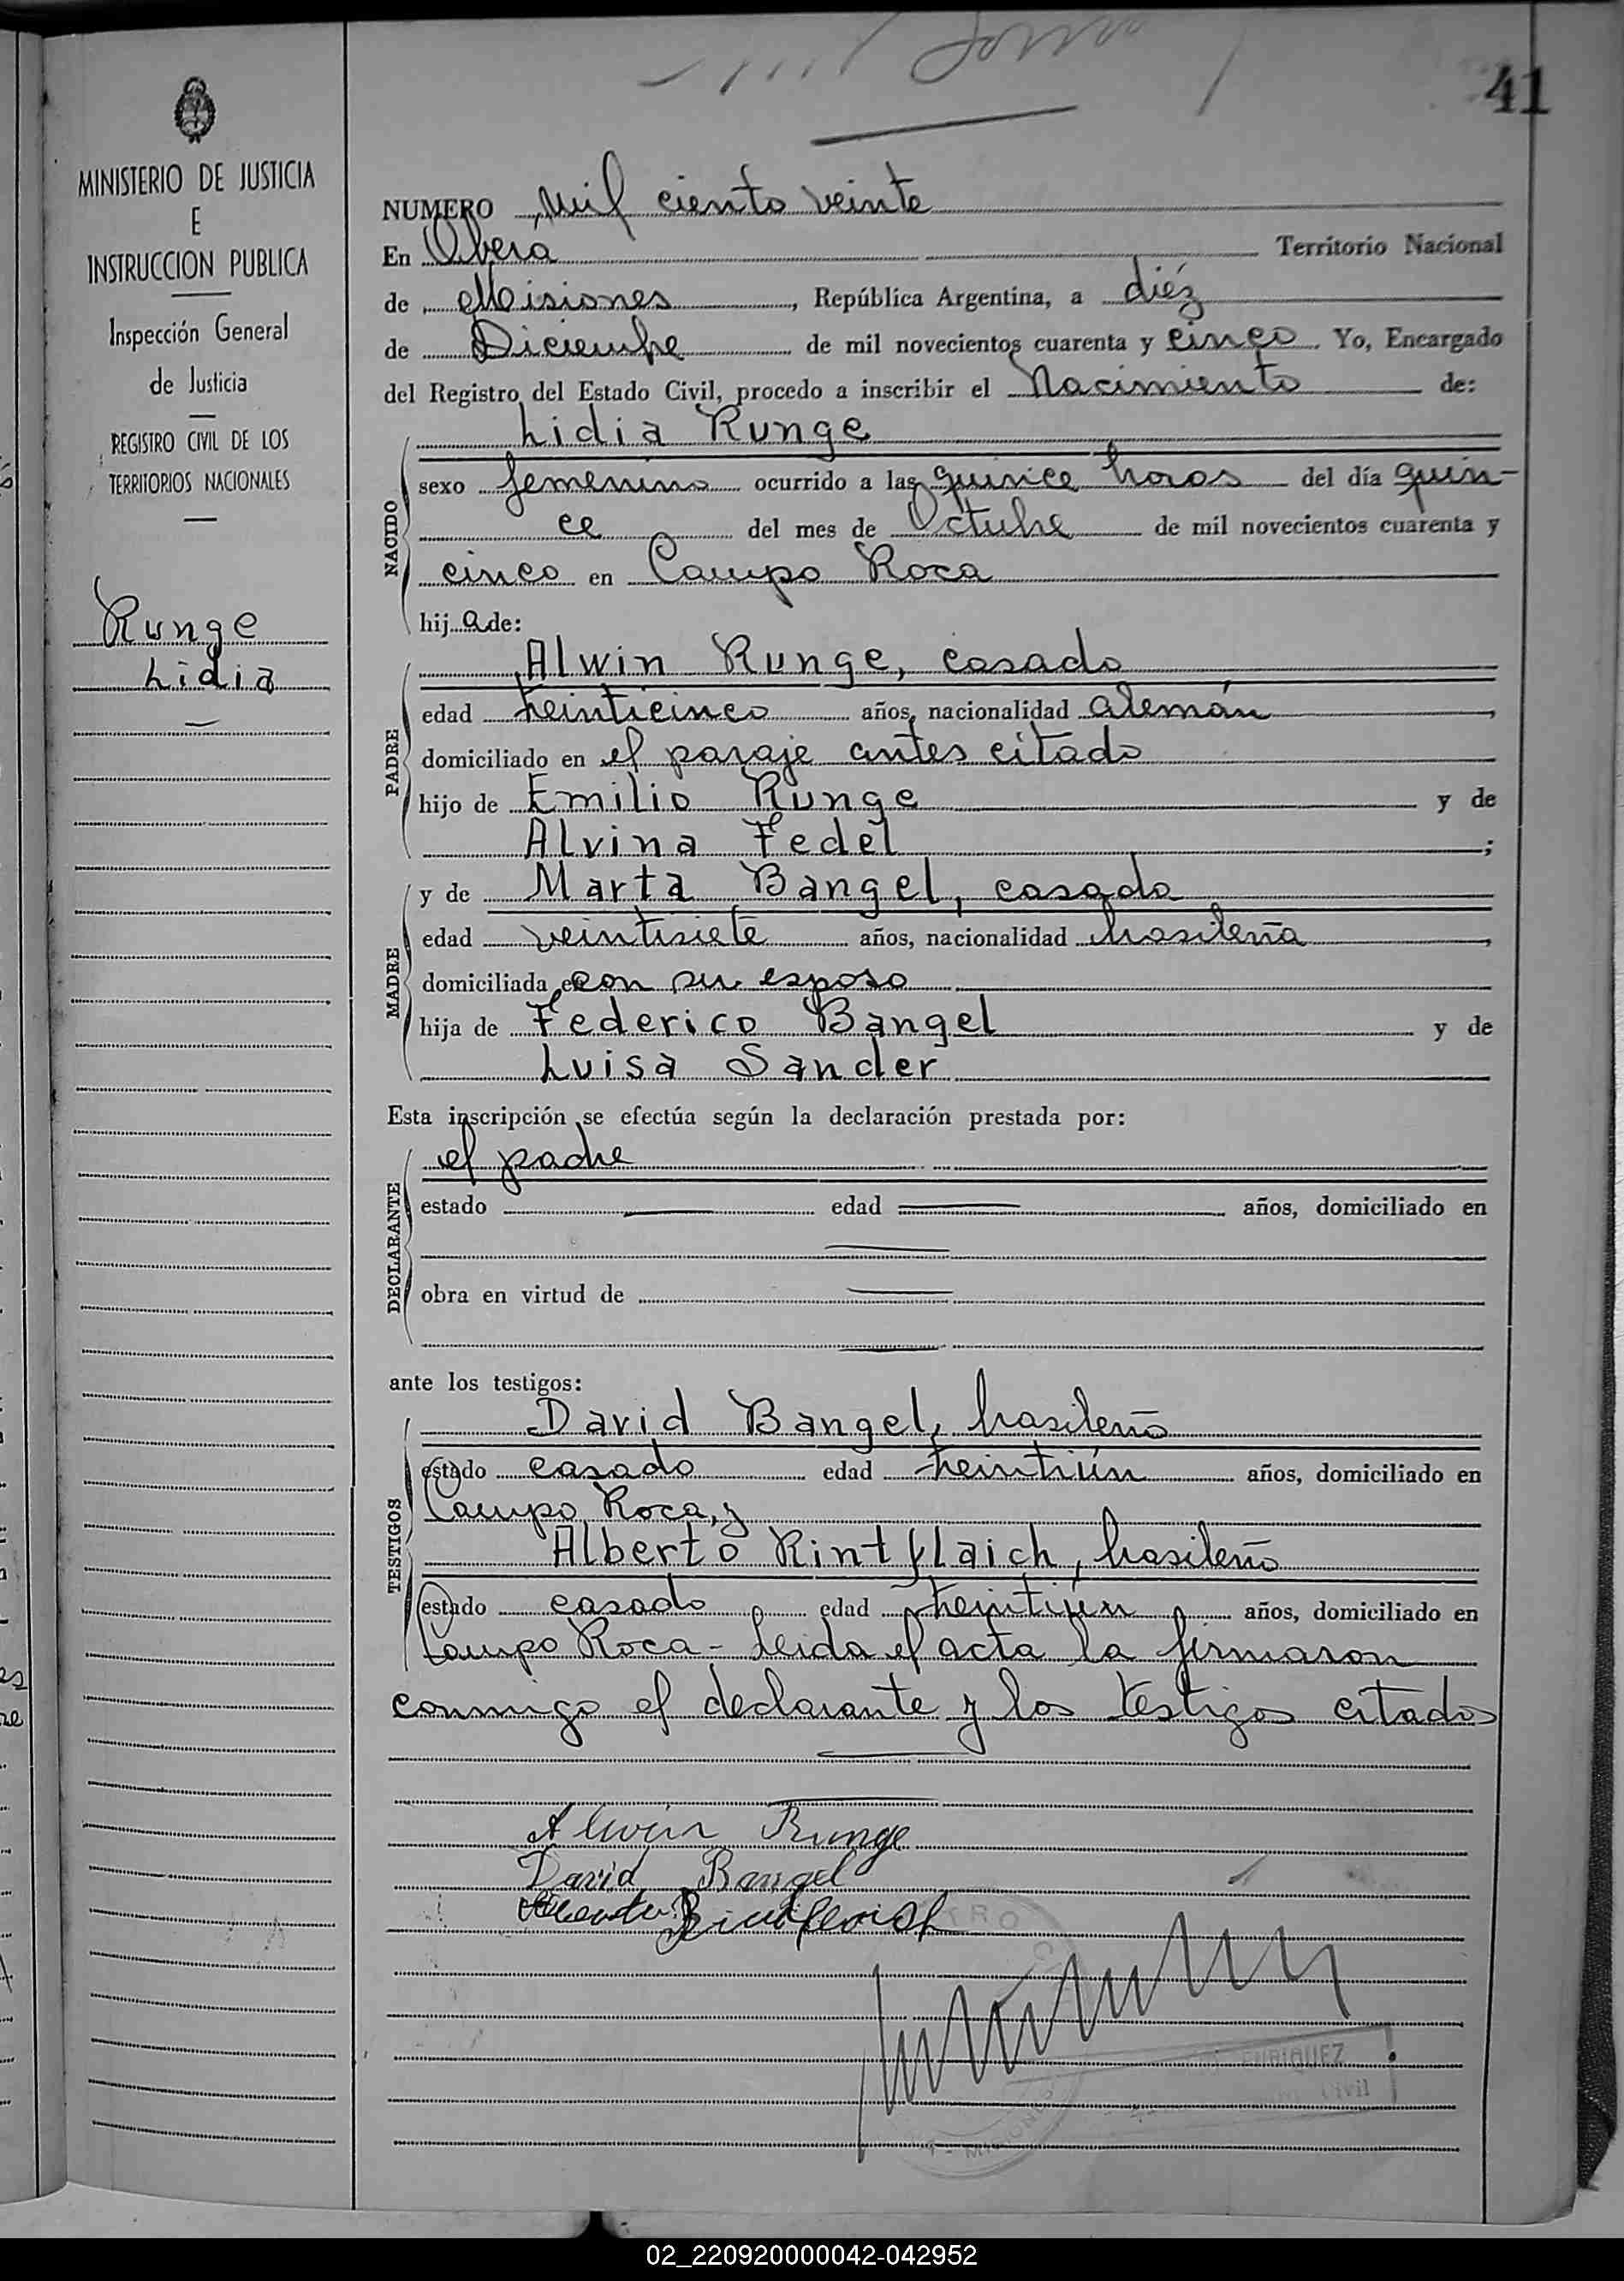 41
MINISTERIO DE JUSTICIA
E
INSTRUCCION PUBLICA
Inspección General
de Justicia
REGISTRO CIVIL DE LOS
TERRITORIOS NACIONALES
Runge
Lidia
NUMERO Mil ciento veinte
En Obera Territorio Nacional
de Misiones, República Argentina, a diéz
de Diciembre de mil novecientos cuarenta y cinco. Yo, Encargado
del Registro del Estado Civil, procedo a inscribir el Nacimiento de:
Lidia Runge
NACIDO
sexo femenino ocurrido a las quince horas del día quin-
ce del mes de Octubre de mil novecientos cuarenta y
cinco en Campo Roca
hija de:
PADRE
Alwin Runge, casado
edad treinticinco años, nacionalidad alemán,
domiciliado en el paraje antes citado
hijo de Emilio Runge y de
Alvina Fedel;
MADRE
y de Marta Bangel, casada
edad veintisiete años, nacionalidad brasileña,
domiciliada en con su esposo
hija de Federico Bangel y de
Luisa Sander
Esta inscripción se efectúa según la declaración prestada por:
DECLARANTE
el padre
estado edad años, domiciliado en
obra en virtud de
ante los testigos:
TESTIGOS
David Bangel, brasileño
estado casado edad treintiún años, domiciliado en
Campo Roca, y
Alberto Rintflaich, brasileño
estado casado edad treintiún años, domiciliado en
Campo Roca - Leida el acta la firmaron
conmigo el declarante y los testigos citados
Alwin Runge
David Bangel
ENRIQUEZ
Civil
02_220920000042-042952